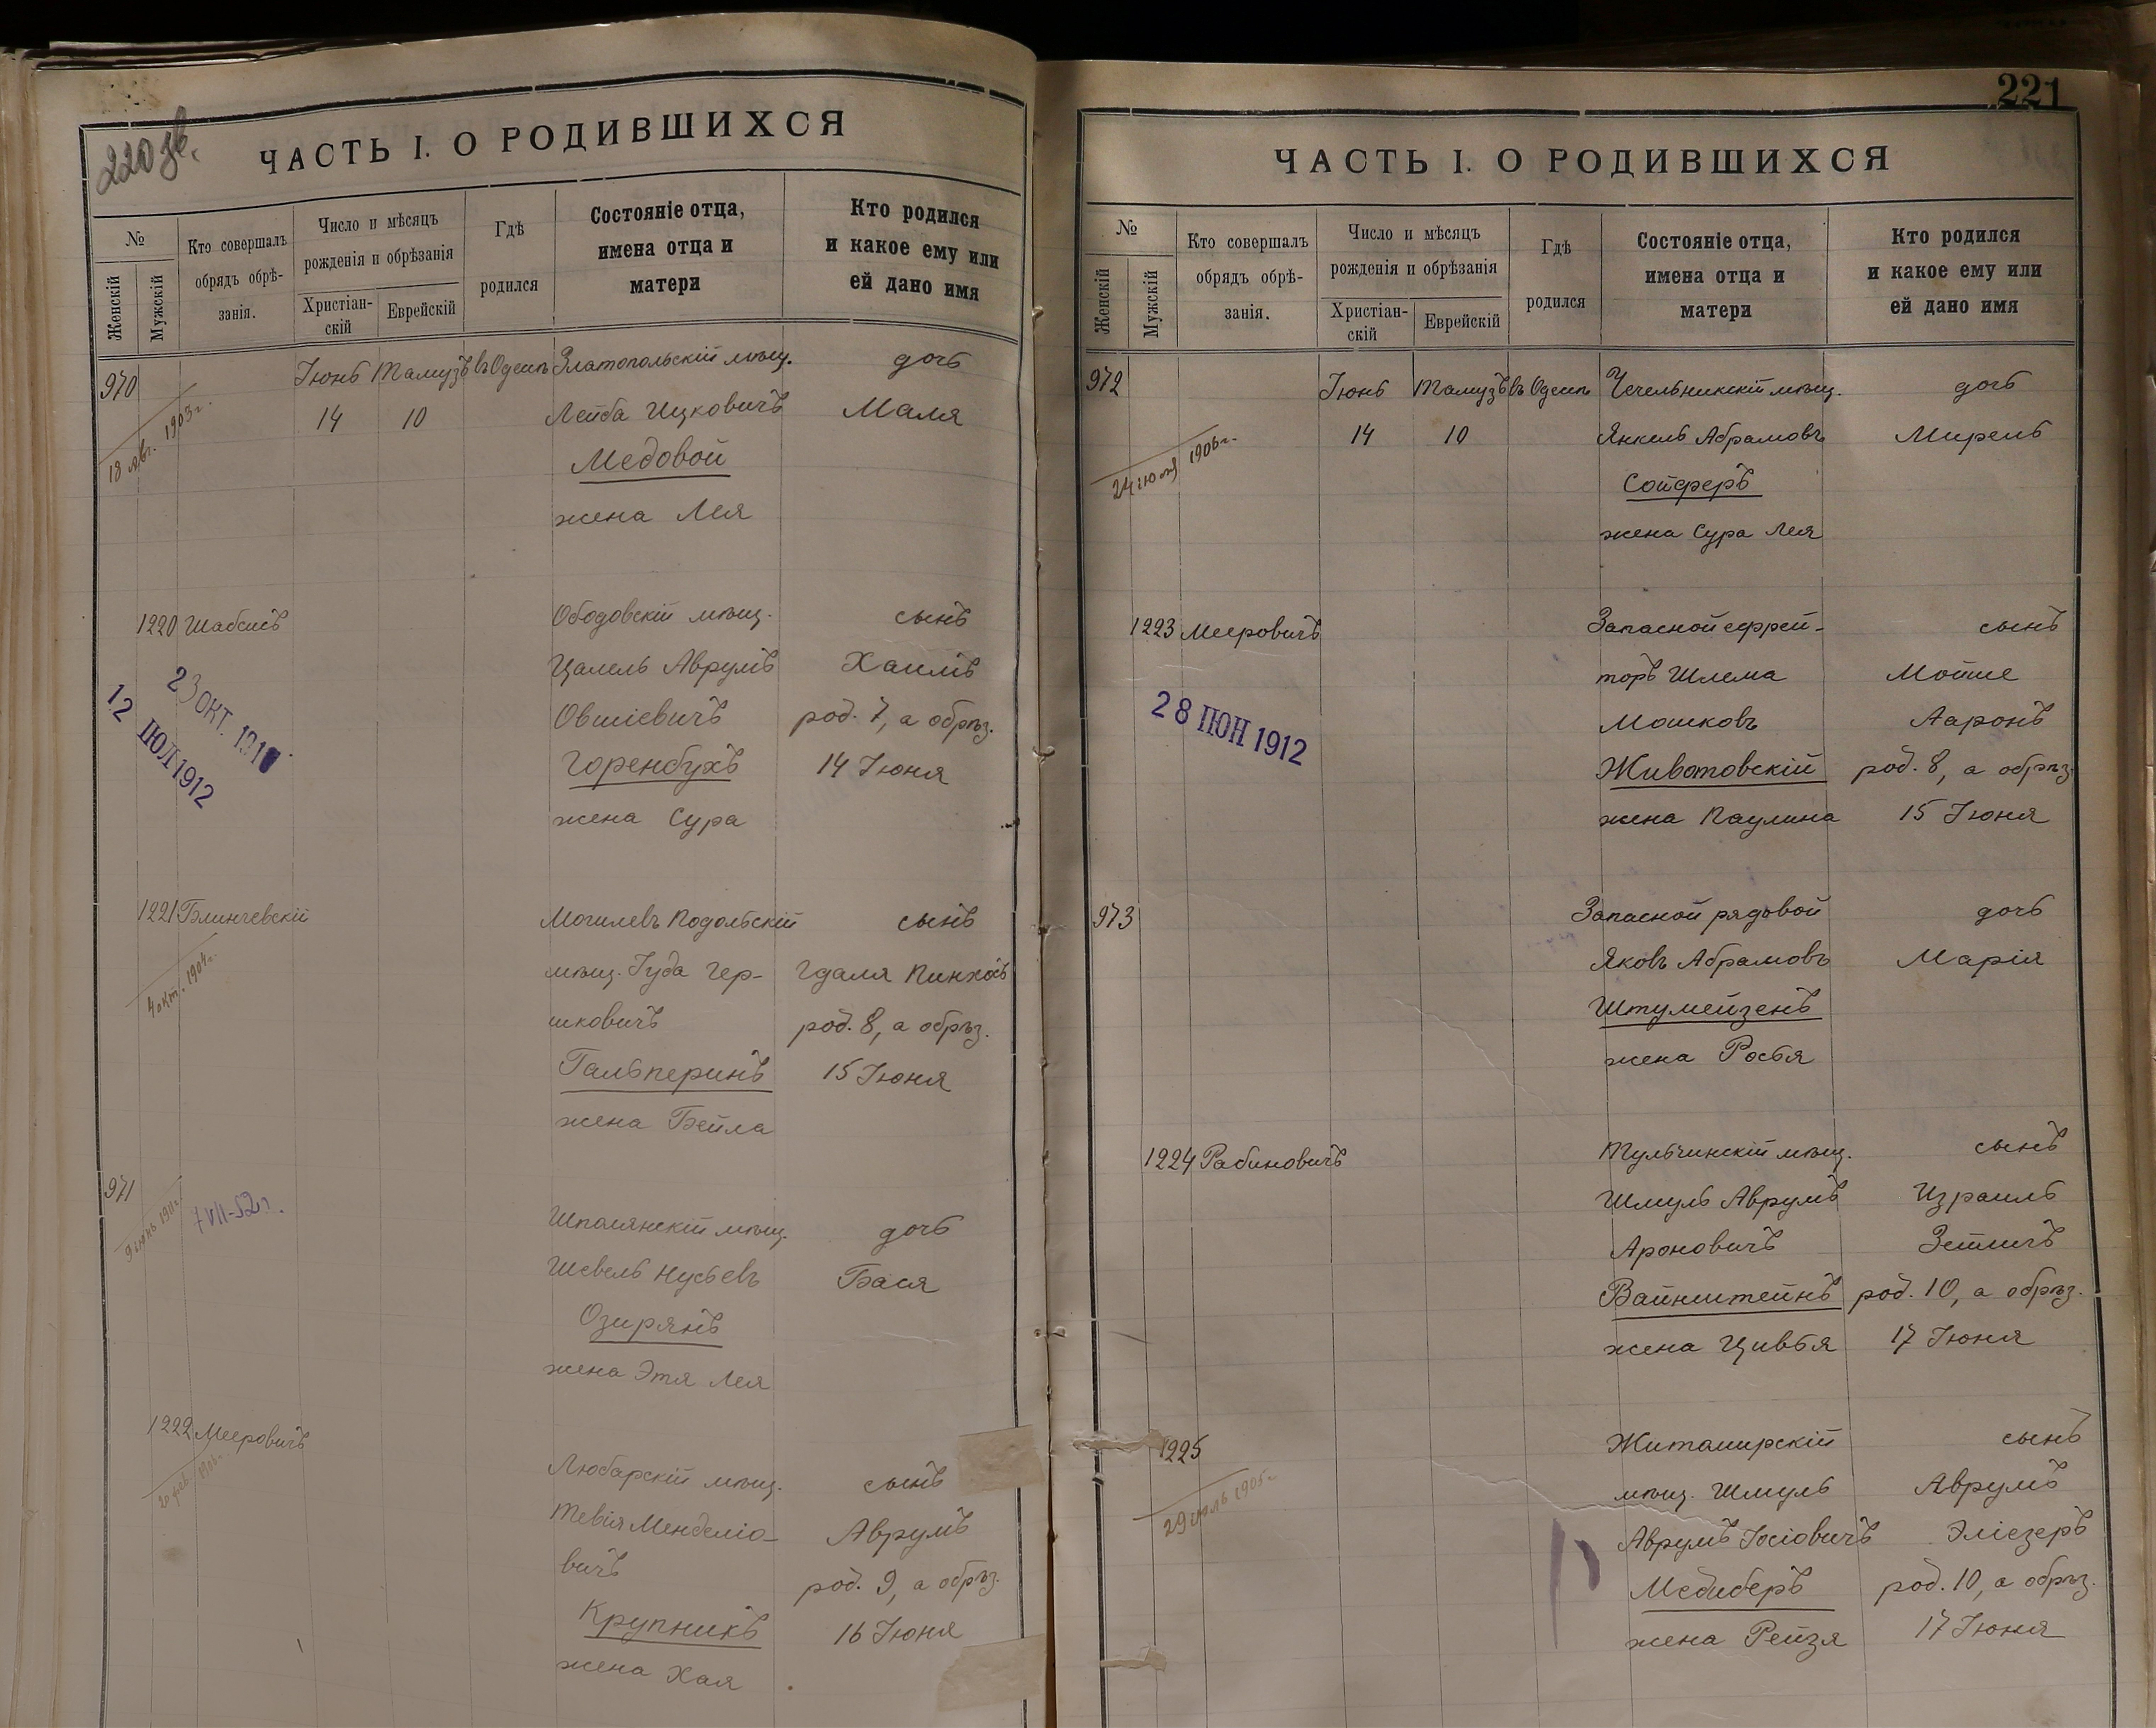 220 зв.
ЧАСТЬ I. О РОДИВШИХСЯ
№
Женскій
Мужскій
Кто совершалъ
обрядъ обрѣ-
занія.
Число и мѣсяцъ
рожденія и обрѣзанія
Христіан-
скій
Еврейскій
Гдѣ
родился
Состояніе отца,
имена отца и
матери
Кто родился
и какое ему или
ей дано имя
970 Іюнь Тамузъ въ Одессѣ Златопольскій мѣщ. дочь
14 10 Лейба Ицковичъ Маля
18 1903 г.
Медовой
жена Лея
1220 Шабсисъ Ободовскій мѣщ. сынъ
Цалель Аврумъ Хаимъ
23 ОКТ. 191
12 ІЮЛ 1912
Овшіевичъ род. 7, а обрѣз.
Горенбухъ 14 Іюня
жена Сура
1221 Блинчевскій Могилевъ Подольскій сынъ
мѣщ. Іуда Гер- Гдаля Пинхосъ
4 окт. 1904 г.
шковичъ род. 8, а обрѣз.
Гальперинъ 15 Іюня
жена Бейла
971
7 VII-52 г.
Шполянскій мѣщ. дочь
Шевель Нусьевъ Бася
Озирянъ
жена Этя Лея
1222 Мееровичъ
Любарскій мѣщ. сынъ
Тевія Менделіо- Аврумъ
вичъ род. 9, а обрѣз.
Крупникъ 16 Іюня
жена Хая
221
ЧАСТЬ I. О РОДИВШИХСЯ
№
Женскій
Мужскій
Кто совершалъ
обрядъ обрѣ-
занія.
Число и мѣсяцъ
рожденія и обрѣзанія
Христіан-
скій
Еврейскій
Гдѣ
родился
Состояніе отца,
имена отца и
матери
Кто родился
и какое ему или
ей дано имя
972 Іюнь Тамузъ въ Одессѣ Чечельникскій мѣщ. дочь
14 10 Янкель Абрамовъ Мирель
24 1906 г.
Сойферъ
жена Сура Лея
1223 Мееровичъ Запасной ефрей- сынъ
торъ Шлема Мойше
28 ІЮН 1912
Мошковъ Ааронъ
Животовскій род. 8, а обрѣз.
жена Паулина 15 Іюня
973 Запасной рядовой дочь
Яковъ Абрамовъ Марія
Штумейзенъ
жена Росья
1224 Рабиновичъ Тульчинскій мѣщ. сынъ
Шмуль Аврумъ Израиль
Ароновичъ
Вайнштейнъ род. 10, а обрѣз.
жена Цивья 17 Іюня
1225 Житомирскій сынъ
мѣщ. Шмуль Аврумъ
29 1905 г.
Аврумъ Іосіовичъ Эліезеръ
Медиберъ род. 10, а обрѣз.
жена Рейзя 17 Іюня